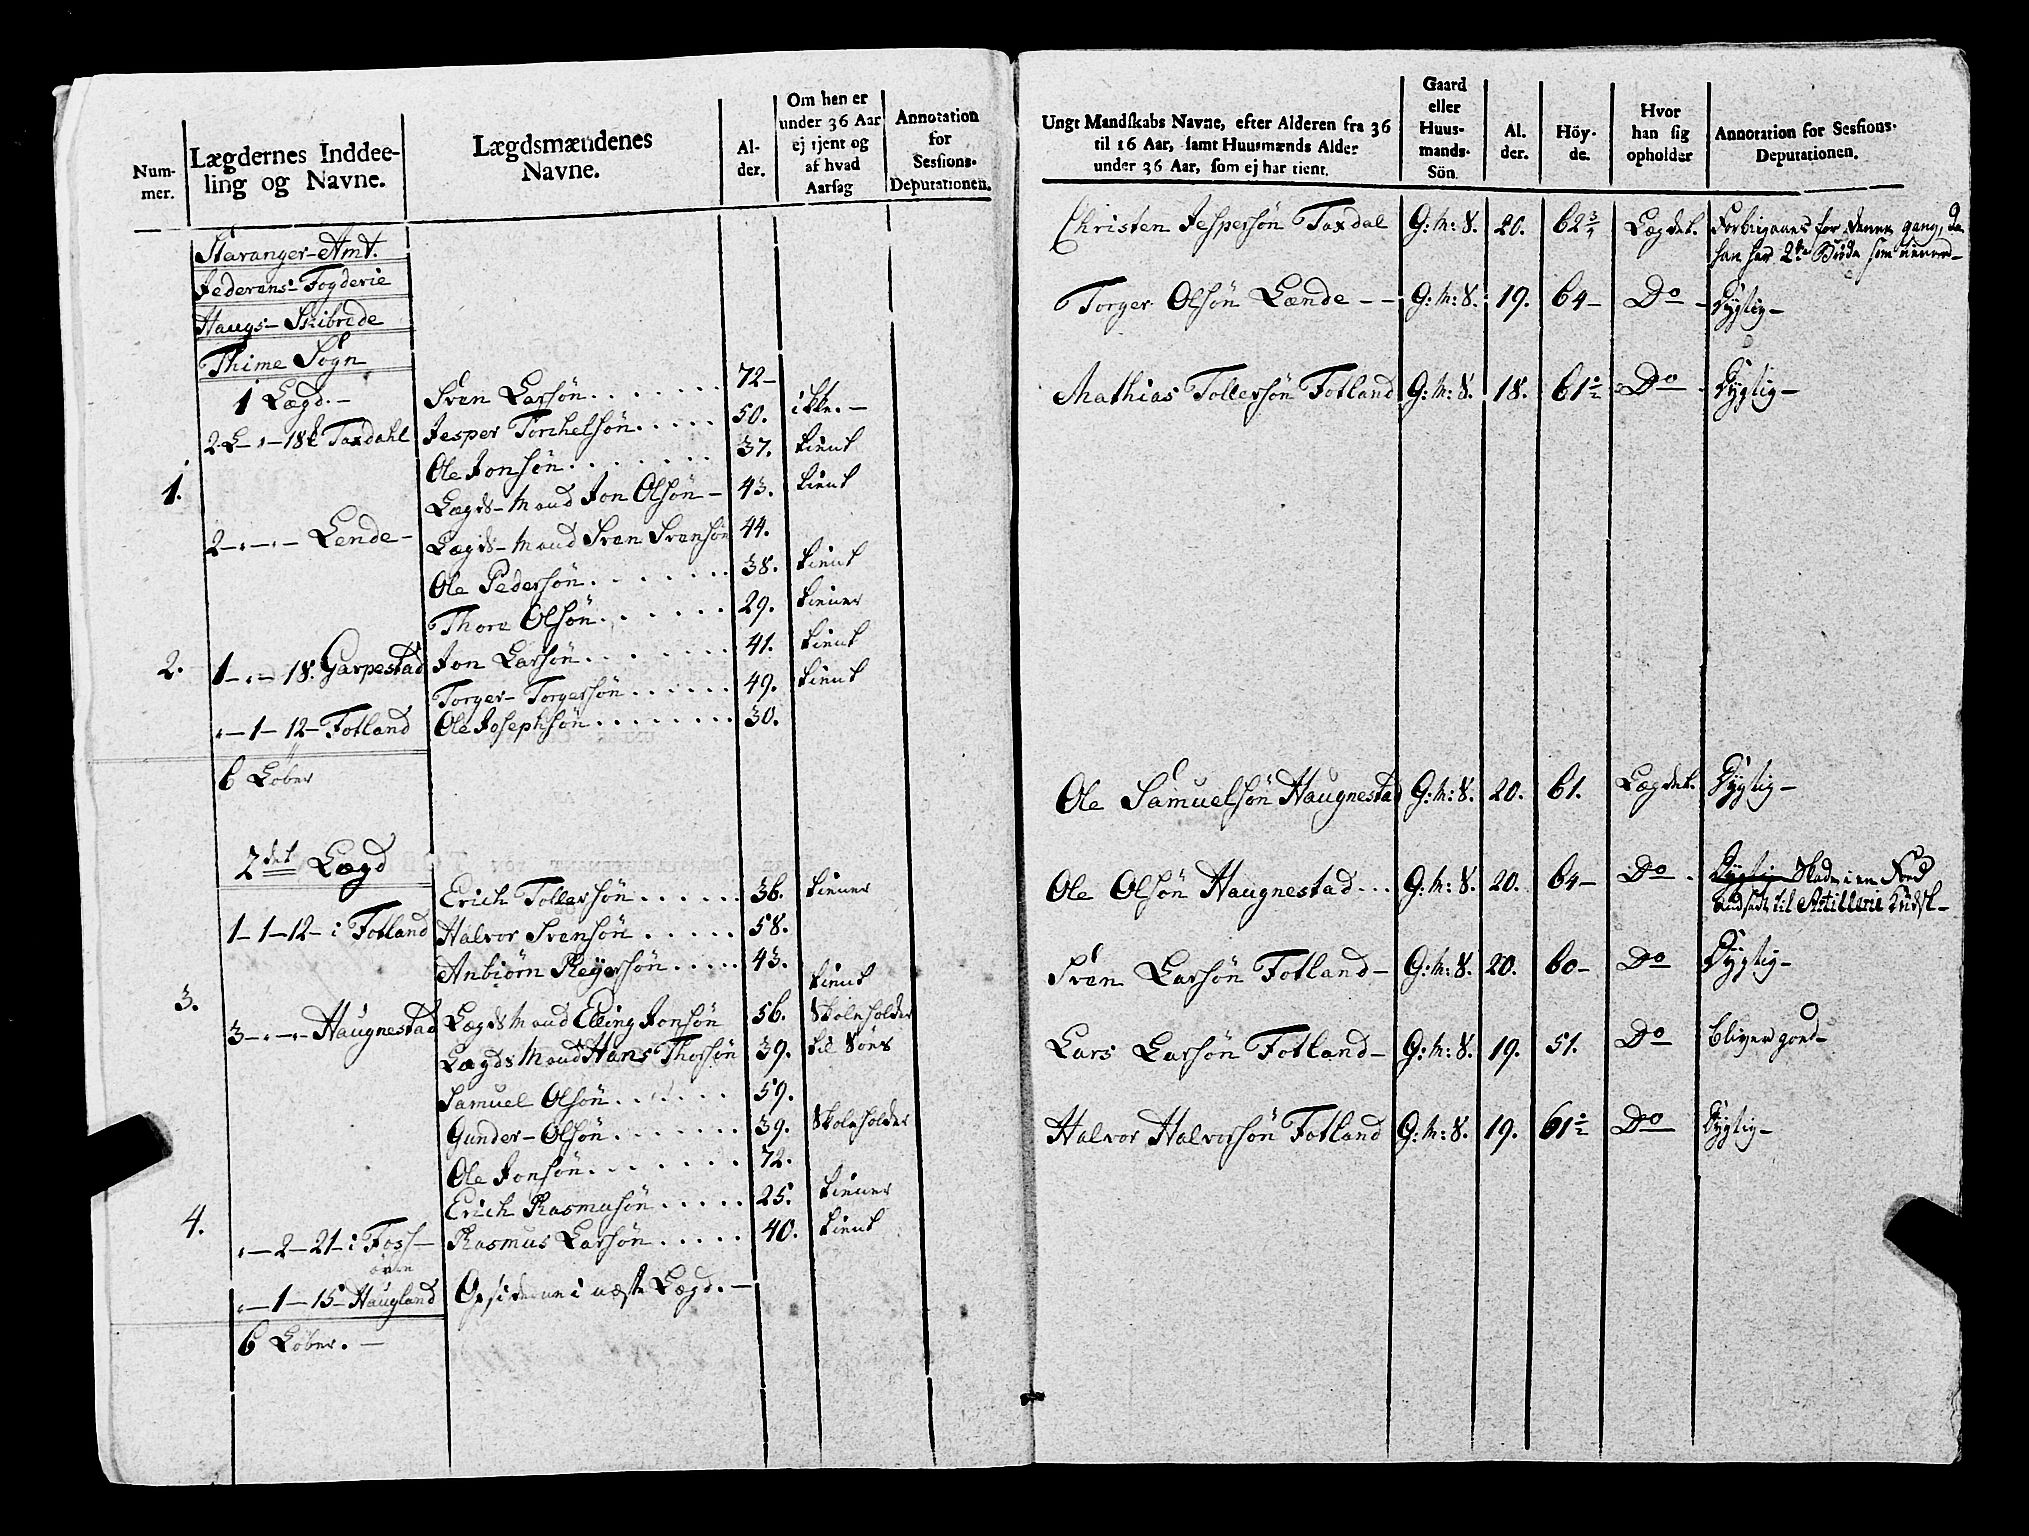 Num-
mer.
Lægdernes Inddee-
ling og Navne.
Lægdsmændenes
Navne.
Al-
der.
Om hen er
under 36 Aar
ej tjent og
af hvad
Aarsag
Annotation
for
Sessions-
Deputationen.
Stavanger-Amt.
Jederens-Fogderie
Haugs-Skibrede
Thime Sogn
1 Lægd.- Sven Larsön 72-
ikke.-
Taxdahl Jesper Torchelsön 50.
Ole Jonsön 37. tient
1. Lægds-Mand Jon Olsön- 43. tient
2 Lende- Lægds-Mand Sven Svensön 44.
Ole Pedersön 38. tient
Thore Olsön 29. tiener
2. 1 18. Garpestad Jon Larsön 41. tient
Torger-Torgersön 49. tient
1-12-Fotland Ole Josephsön 30.
6 Løber
2det Lægd
Erich Tollersön 36. tiener
1-1-12-i Fotland Halvor Svensön 58.
Anbiörn Reyersön 43.
tient
3. 3 Haugnestad Lægds Mand Elling Jonsön 56. Skoleholder
Lægds Mand Hans Thorsön 39. til Søes
Samuel Olsön 59.
Gunder-Olsön 39. Skoleholder
Ole Jonsön 72.
Erich Rasmusön 25. tiener
4. 2-21-i Foss- Rasmus Larsön 40. tient
øven
1-15-Haugland Opsiderne i næste Lægd.-
6 Løber.-
Ungt Mandskabs Navne, efter Alderen fra 36
til 16 Aar, samt Huusmænds Alder
under 36 Aar, som ej har tient.
Gaard
eller
Huus-
mands-
Sön.
Al.
der.
Höy-
de.
Hvor
han sig
opholder
Annotation for Sessions-
Deputationen.
Christen Jespersön Taxdal G:M:S. 20. 62 3/4 Lægdet. Forbigaaes for denne gang, da
han har 2de Brödre som tiener-
Torger Olsön Lænde -- G:M:S. 19. 64- Do - Dygtig-
Mathias Tollersön Fotland G:M:S. 18. 61 1/2 Do Dygtig-
Ole Samuelsön Haugnestad G:M:S. 20. 61. Lægdet. Dygtig-
Ole Olsön Haugnestad G:M:S. 20. 64- Do Dygtig Skade i en Food
Ansat til Artillerie Kudsk-
Sven Larsön Fotland- G:M:S. 20. 60- Do Dygtig-
Lars Larsön Fotland- G:M:S. 19. 51. Do bliver goed-
Halvor Halvorsön Fotland G:M:S. 19. 61 1/2 Do Dygtig-